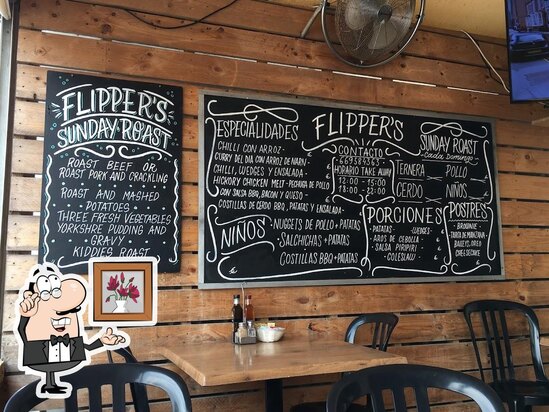 FLIPPER'S
SUNDAY ROAST
ROAST BEEF OR
ROAST PORK AND CRACKLING
ROAST AND MASHED
POTATOES
THREE FRESH VEGETABLES
YORKSHIRE PUDDING AND
GRAVY
KIDDIES ROAST
ESPECIALIDADES
CHILLI CON ARROZ
CURRY DEL DIA CON ARROZ DE NARNY
CHILLI, WEDGES Y ENSALADA
HICKORY CHICKEN MELT - PECHUGA DE POLLO
CON SALSA BBQ, BACON Y QUESO
COSTILLAS DE CERDO BBQ, PATATAS Y ENSALADA
NIÑOS
NUGGETS DE POLLO + PATATAS
SALCHICHAS + PATATAS
COSTILLAS BBQ + PATATAS
FLIPPER'S
CONTACTO
669389363
HORARIO TAKE AWAY
12:00 - 15:00
18:00 - 21:00
SUNDAY ROAST
Cada Domingo
TERNERA
POLLO
CERDO
NIÑOS
PORCIONES
PATATAS
WEDGES
AROS DE CEBOLLA
SALSA PIRIPIRI
COLESLAW
POSTRES
BROWNIE
TARTA DE MANZANA
BAILEYS, OREO
CHEESECAKE